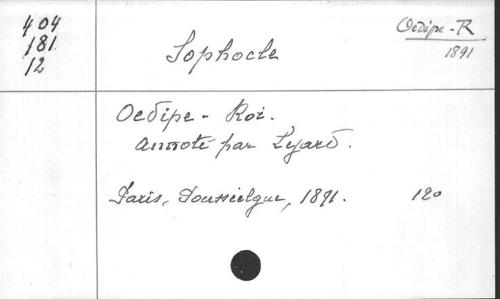 404
181
12
Oedipe-R
1891
Sophocle
Oedipe - Roi.
annoté par Lejard.
Paris, Poussielgue, 1891. 12o